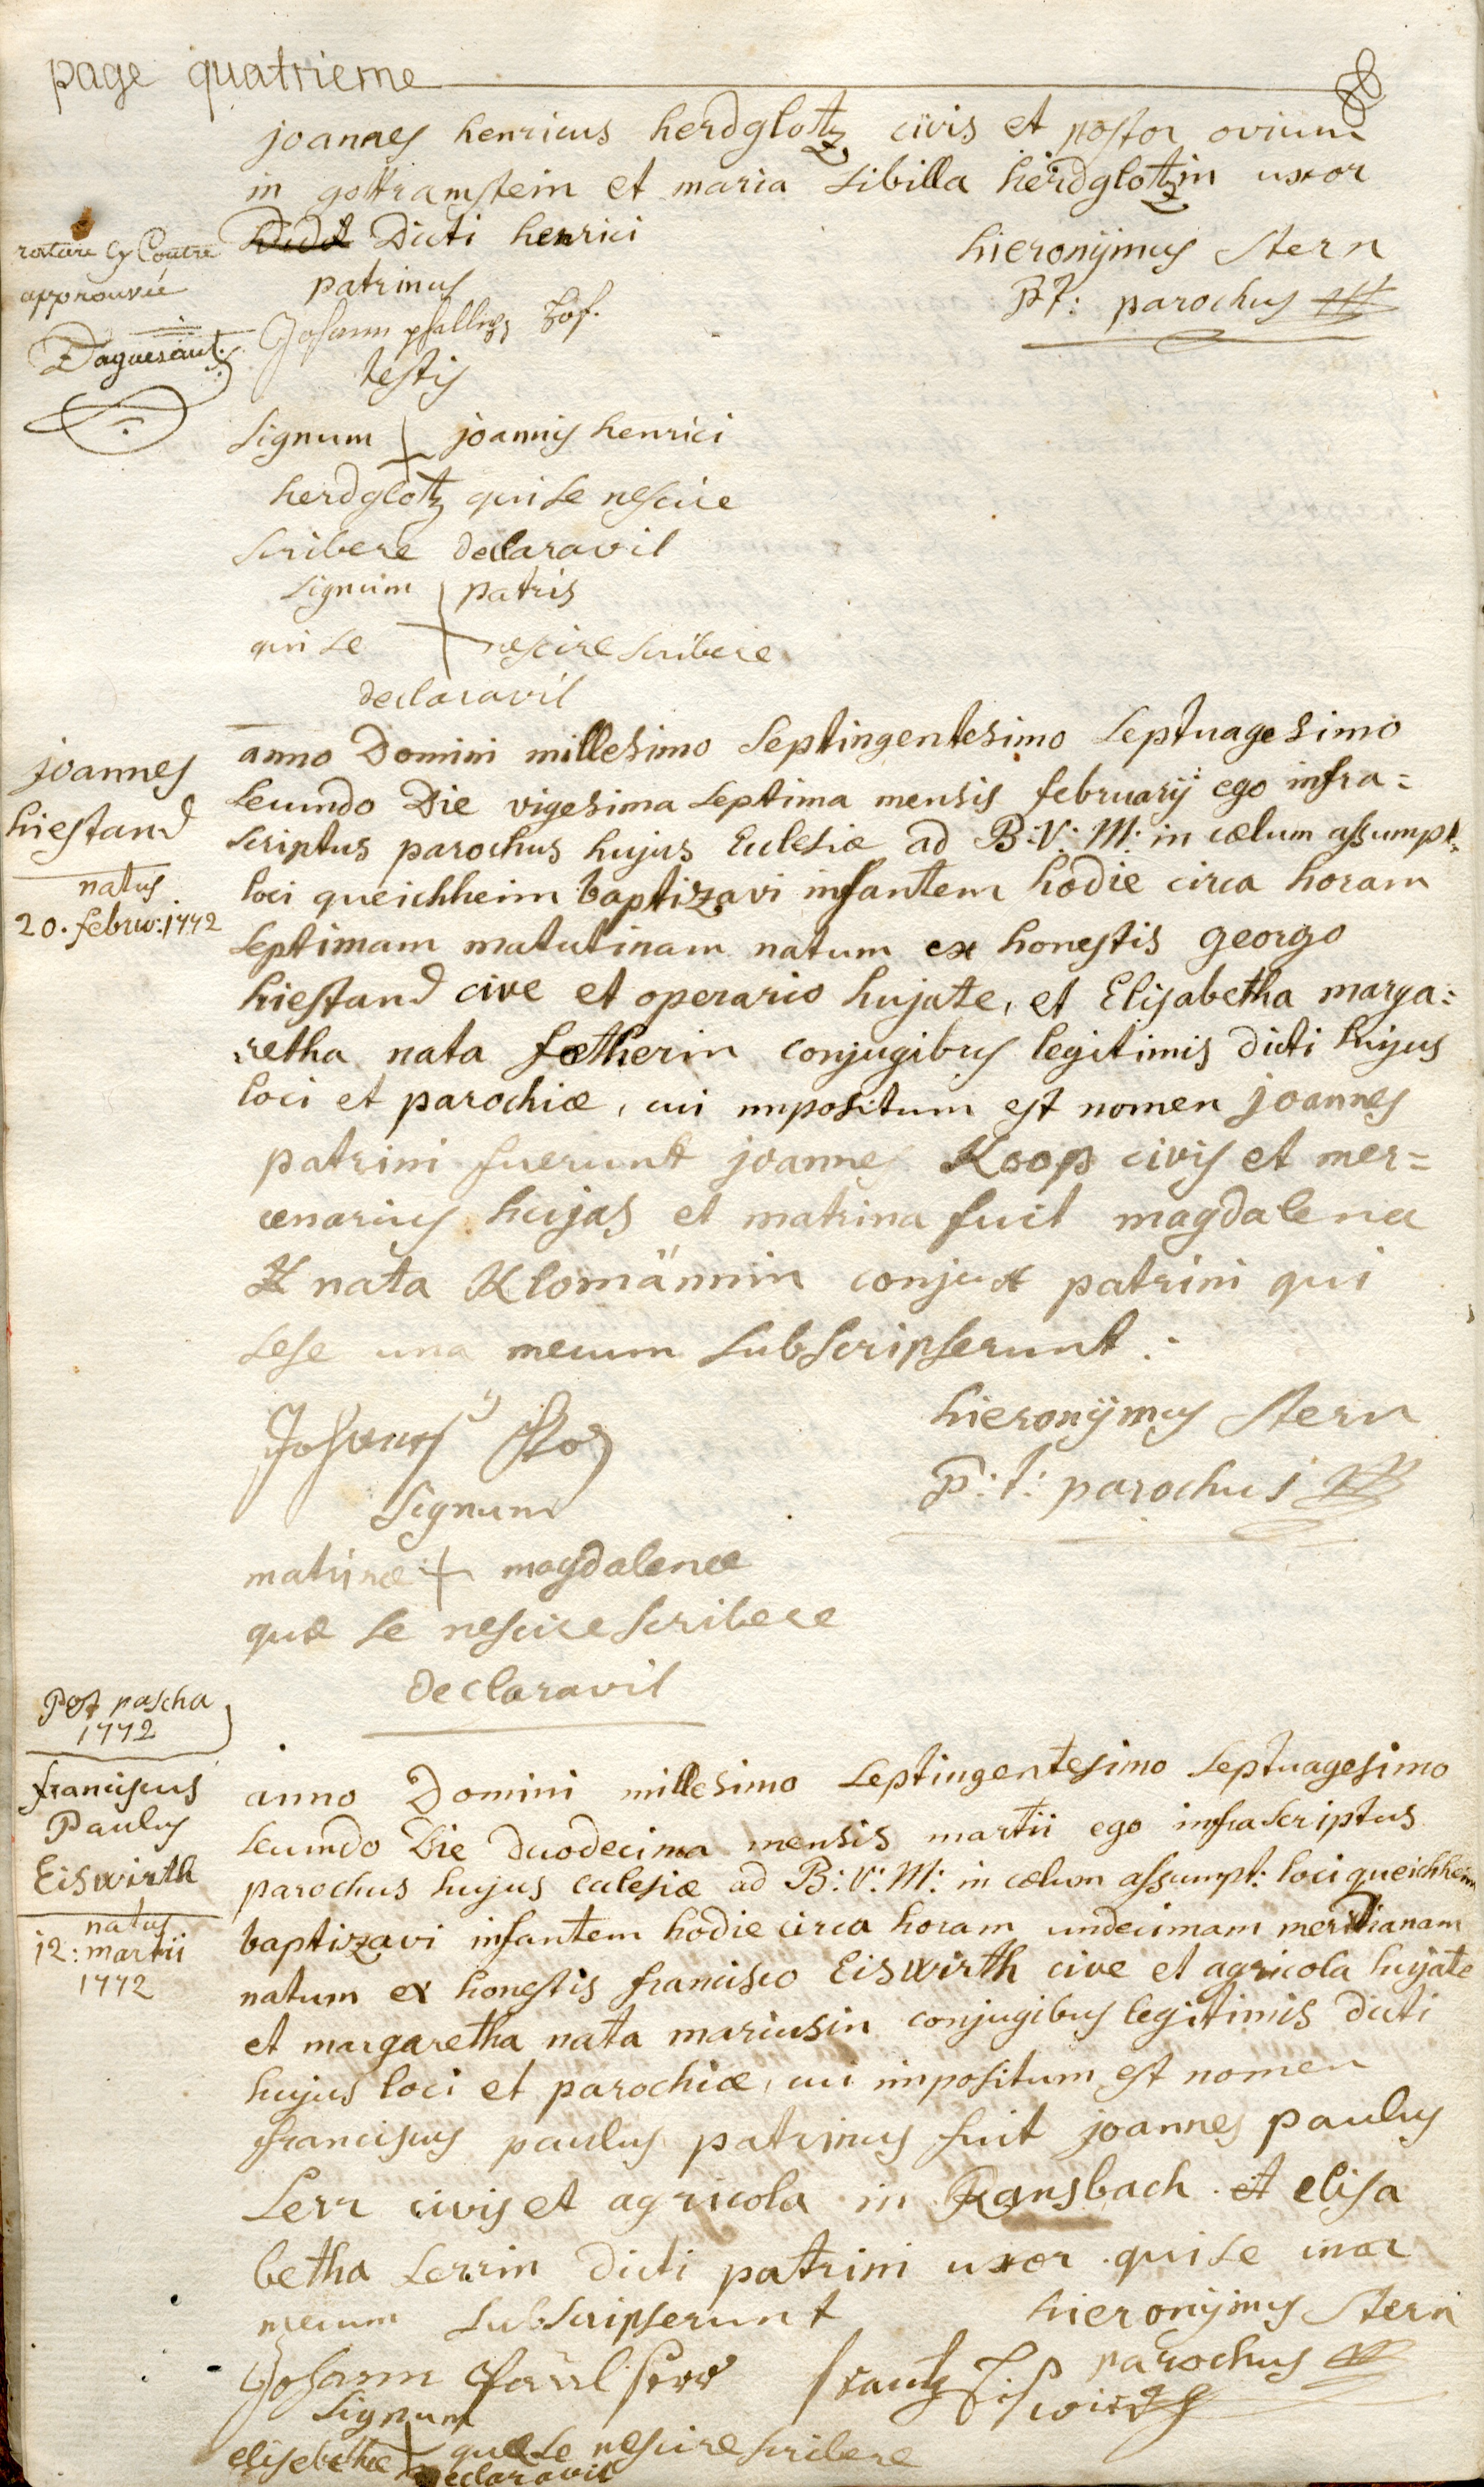 page quatrieme
joannes henricus herdglotz civis et pastor ovium
in gottramstein et maria Sibilla herdglotzin uxor
Dicti henrici
hieronÿmus Stern
p.t: parochus
patrinus
rature cy Contre
approuvée
Daguesaut
Johann
testis
Signum joannis henrici
herdglotz qui se nescire
scribere declaravit
Signum patris
qui se nescire scribere
declaravit
joannes
hiestand
natus
20. febru: 1772
anno Domini millesimo Septingentesimo Septuagesimo
secundo Die vigesima septima mensis februarij ego infra=
scriptus parochus hujus Ecclesiæ ad B:V:M: in cælum assumpt:
loci queichheim baptizavi infantem hodie circa horam
septimam matutinam natum ex honestis georgo
hiestand cive et operario hujate, et Elisabetha marga=
retha nata fætherin conjugibus legitimis dicti hujus
loci et parochiæ, cui impositum est nomen joannes
patrini fuerunt joannes Koop civis et mer=
cenarius hujas et matrina fuit magdalena
nata Klomännin conjux patrini qui
sese una mecum subscripserunt:
hieronÿmus Stern
p:t: parochus
Johannes
Signum
matrinæ magdalenæ
quæ se nescire scribere
declaravit
Post pascha
1772
franciscus
Paulus
Eiswirth
natus
12: martii
1772
anno Domini millesimo Septingentesimo Septuagesimo
secundo Die duodecima mensis martii ego infrascriptus
parochus hujus ecclesiæ ad B:V:M: in cælum assumpt: loci queichheim
baptizavi infantem hodie circa horam undecimam meridianam
natum ex honestis francisco Eiswirth cive et agricola hujate
et margaretha nata mariusin conjugibus legitimis dicti
hujus loci et parochiæ, cui impositum est nomen
franciscus paulus patrinus fuit joannes paulus
Serr civis et agricola in Ransbach et elisa
betha Serrin dicti patrini uxor qui se una
mecum subscripserunt
hieronÿmus Stern
parochus
Johann Paul Serr
frantz Eiswirth
Signum
elisebethæ quæ se nescire scribere
declaravit